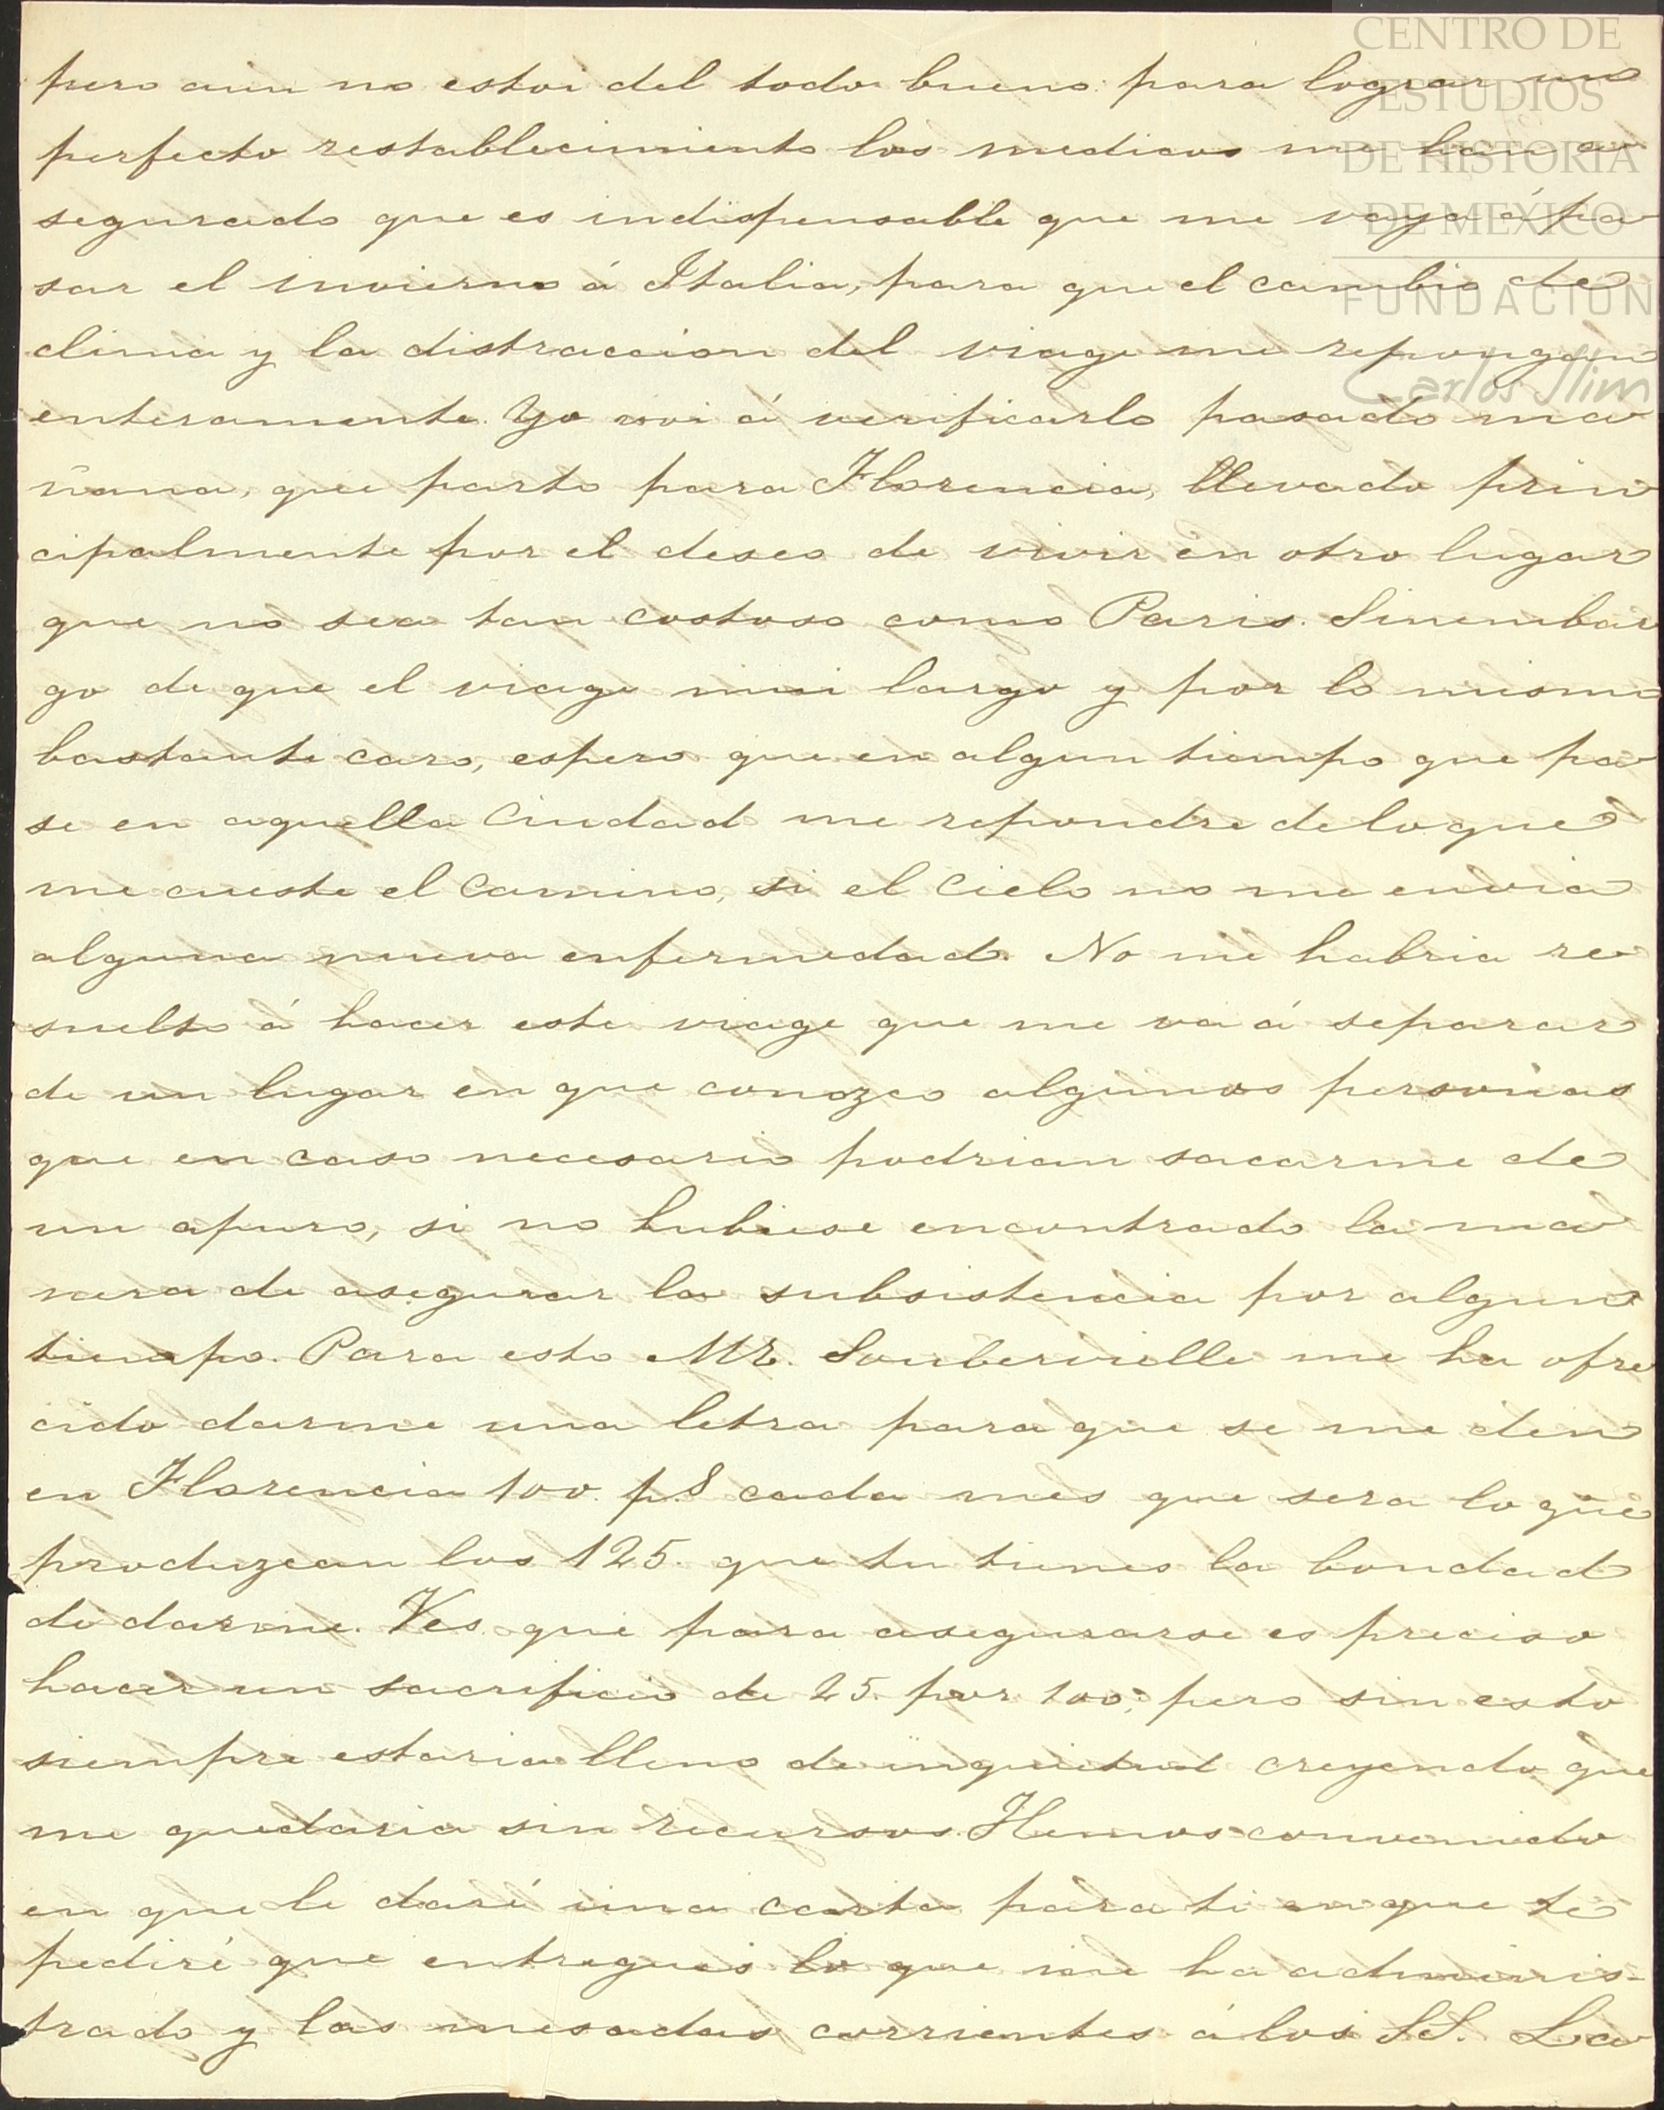 CENTRO DE
ESTUDIOS
DE HISTORIA
DE MEXICO
FUNDACION
Carlos Slim
pero aun no estoi del todo bueno para lograr un
perfecto restablecimiento los medicos me han a
segurado que es indispensable que me vaya á pa
sar el invierno á Italia, para que el cambio de
clima y la distraccion del viage me repongan
enteramente. Yo voi á verificarlo pasado ma
ñana, que parto para Florencia, llevado prin
cipalmente por el deseo de vivir en otro lugar
que no sea tan costoso como Paris. Sinembar
go de que el viage mui largo y por lo mismo
bastante caro, espero que en algun tiempo que pa
se en aquella Ciudad me repondre de lo que
me cueste el Camino, si el Cielo no me envia
alguna nueva enfermedad. No me habria re
suelto á hacer este viage que me va á separar
de un lugar en que conozco algunas personas
que en caso necesario podrian sacarme de
un apuro, si no hubiese encontrado la ma
nera de asegurar la subsistencia por algun
tiempo. Para esto Mr. Souberville me ha ofre
cido darme una letra para que se me den
en Florencia 100. p.s cada mes que sera lo que
produzcan los 125. que tu tienes la bondad
de darme. Ves que para asegurarse es preciso
hacer un sacrificio de 25. por 100; pero sin esto
siempre estaria lleno de inquietud creyendo que
me quedaria sin recursos. Hemos convenido
en que le daré una carta para ti en que te
pediré que entregues lo que me ha adminis-
trado y las mesadas corrientes á los SS. La